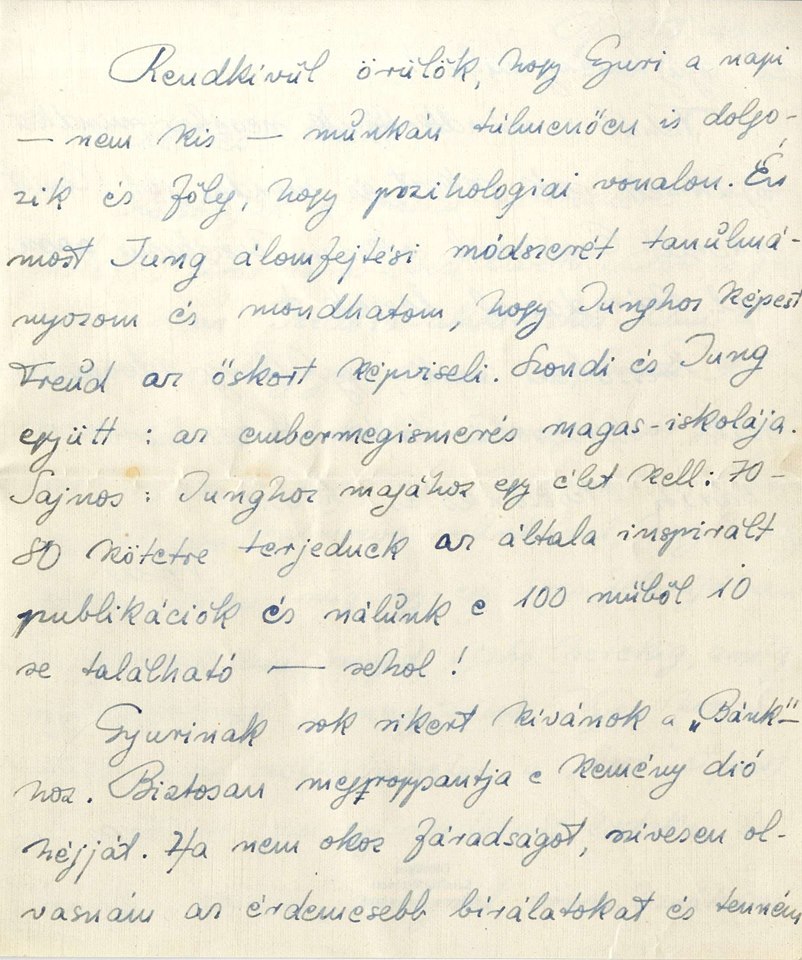 Rendkívül örülök, hogy Gyuri a napi
— nem kis — munkán túlmenően is dolgo-
zik és főleg, hogy pszihologiai vonalon. Én
most Jung álomfejtési módszerét tanulmá-
nyozom és mondhatom, hogy Junghoz képest
Freud az őskort képviseli. Szondi és Jung
együtt : az embermegismerés magas-iskolája.
Sajnos : Junghoz majához egy élet kell : 70-
80 kötetre terjeduck az általa inspirált
publikációk és nálunk e 100 műből 10
se található — sehol !
Gyurinak sok sikert kívánok a „Bánk"-
hoz. Biztosan megroppantja e kemény dió
héjját. Ha nem okoz fáradságot, szívesen ol-
vasnám az érdemesebb birálatokat és tenném